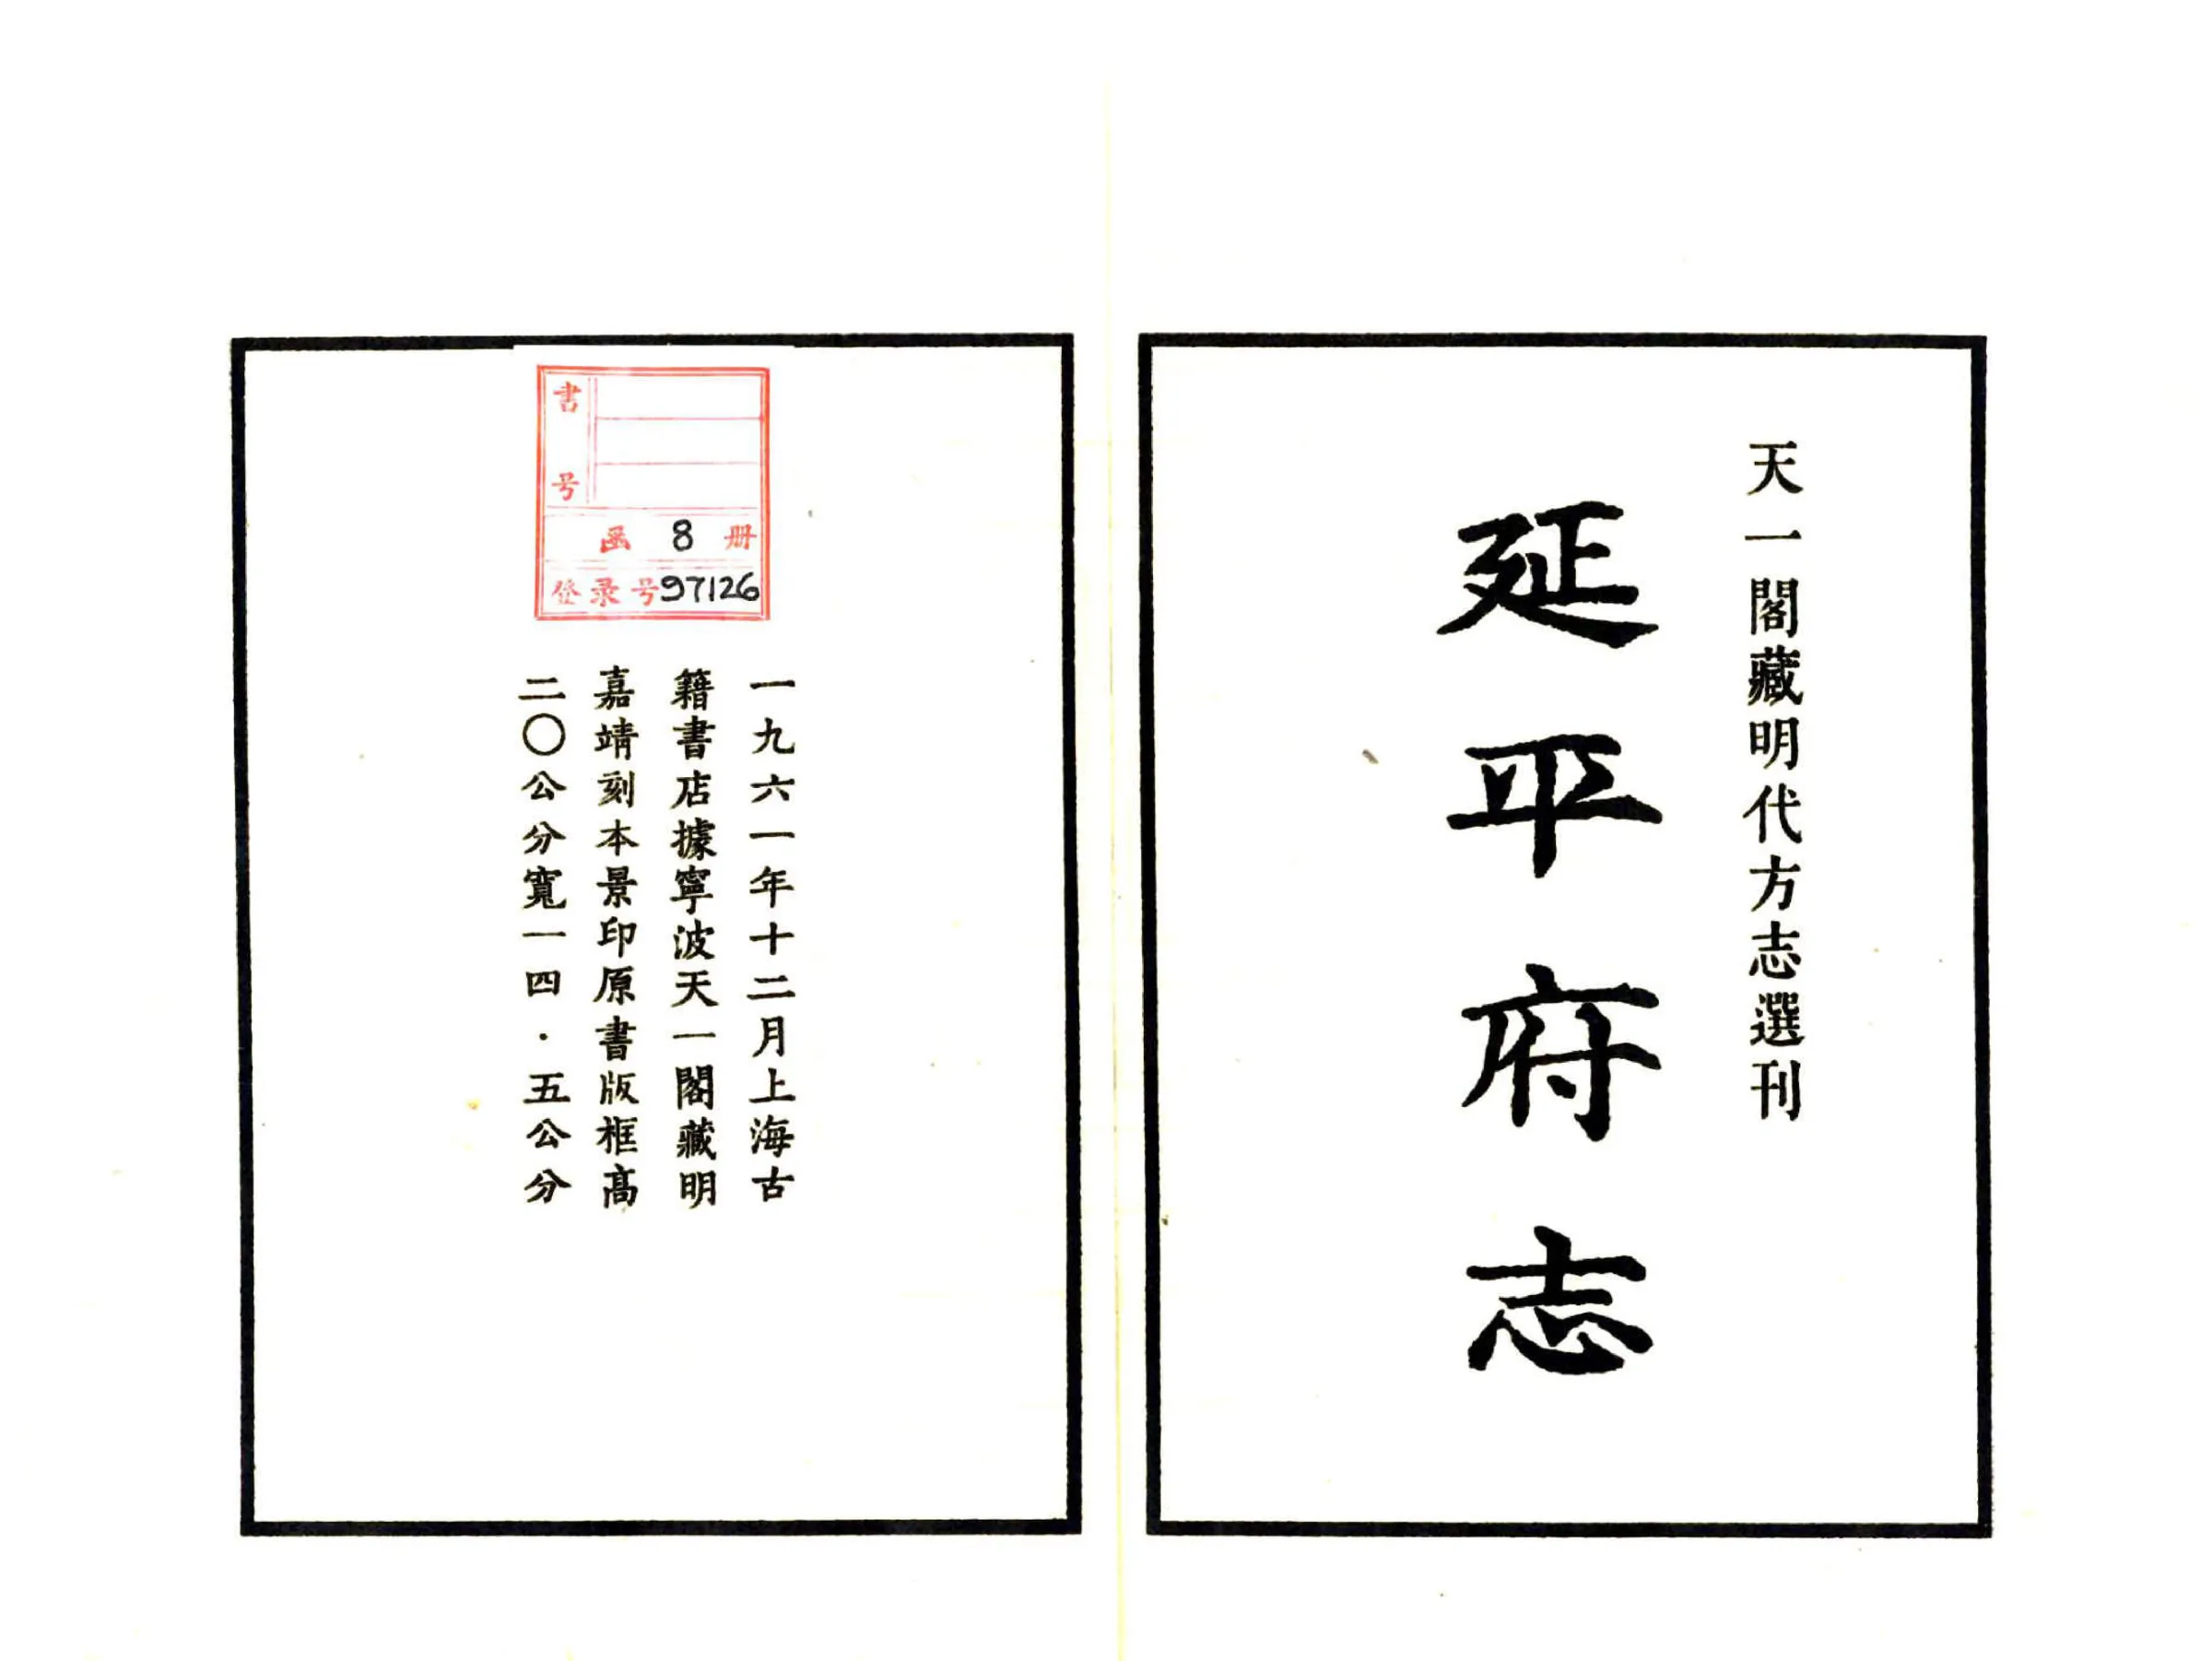 天一閣藏明代方志選刊
延平府志
書号
函 8 册
登录号97126
一九六一年十二月上海古
籍書店據寧波天一閣藏明
嘉靖刻本景印原書版框高
二〇公分寬一四·五公分